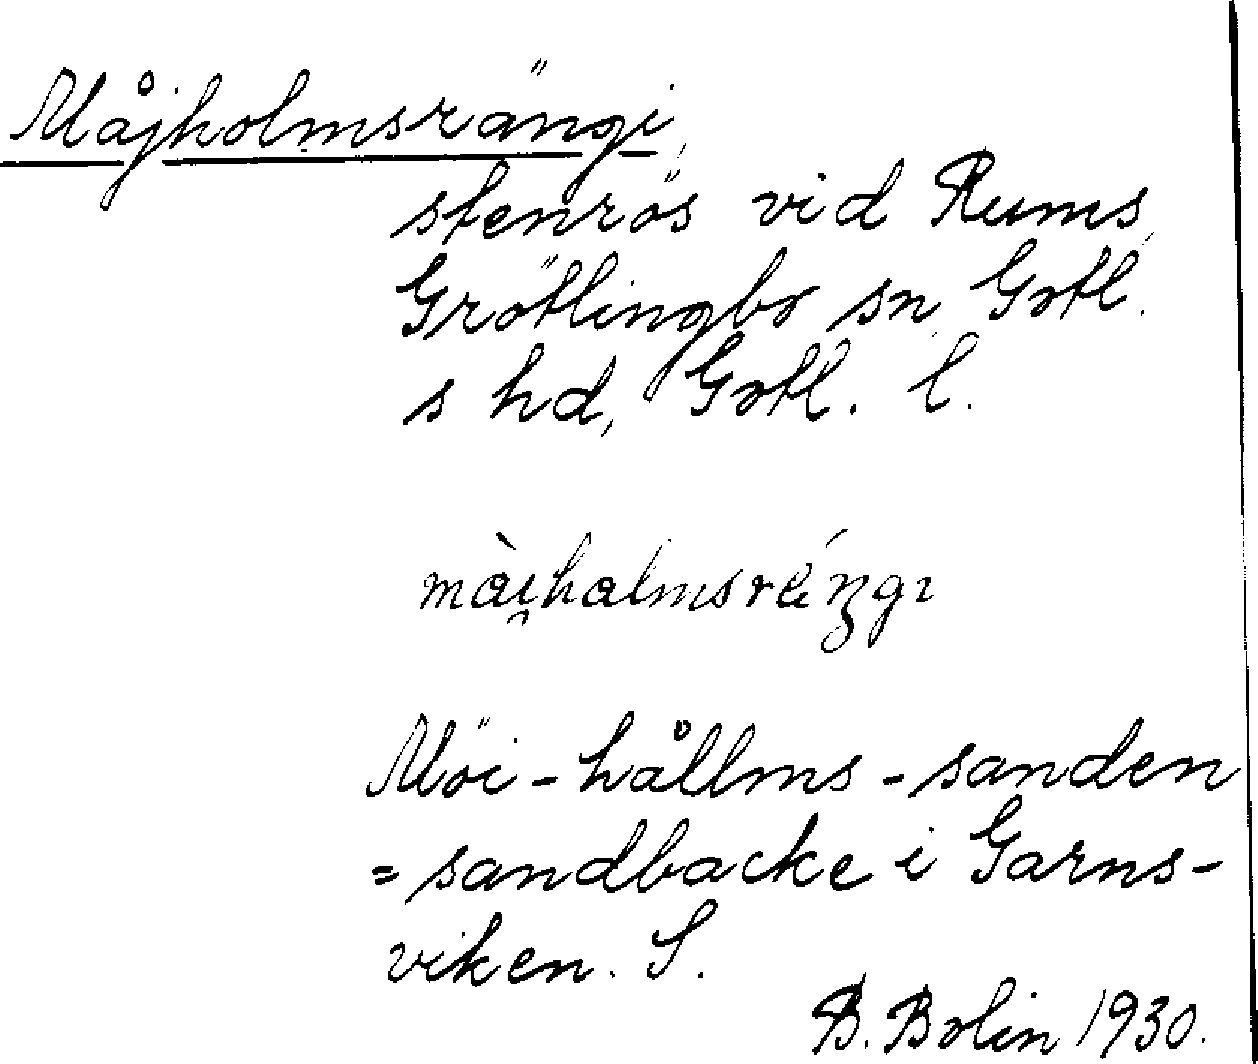 Måjholmsrängi,
stenrös vid Rums,
Grötlingbo sn, Gotl.
s hd, Gotl. l.
Möi-hållms-sanden
= sandbacke i Garns-
viken. S.
B. Bolin 1930.